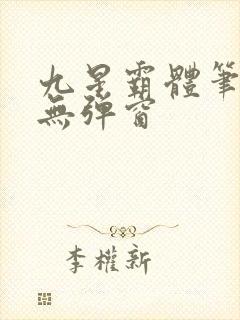 九星霸體筆
無彈窗
李權新